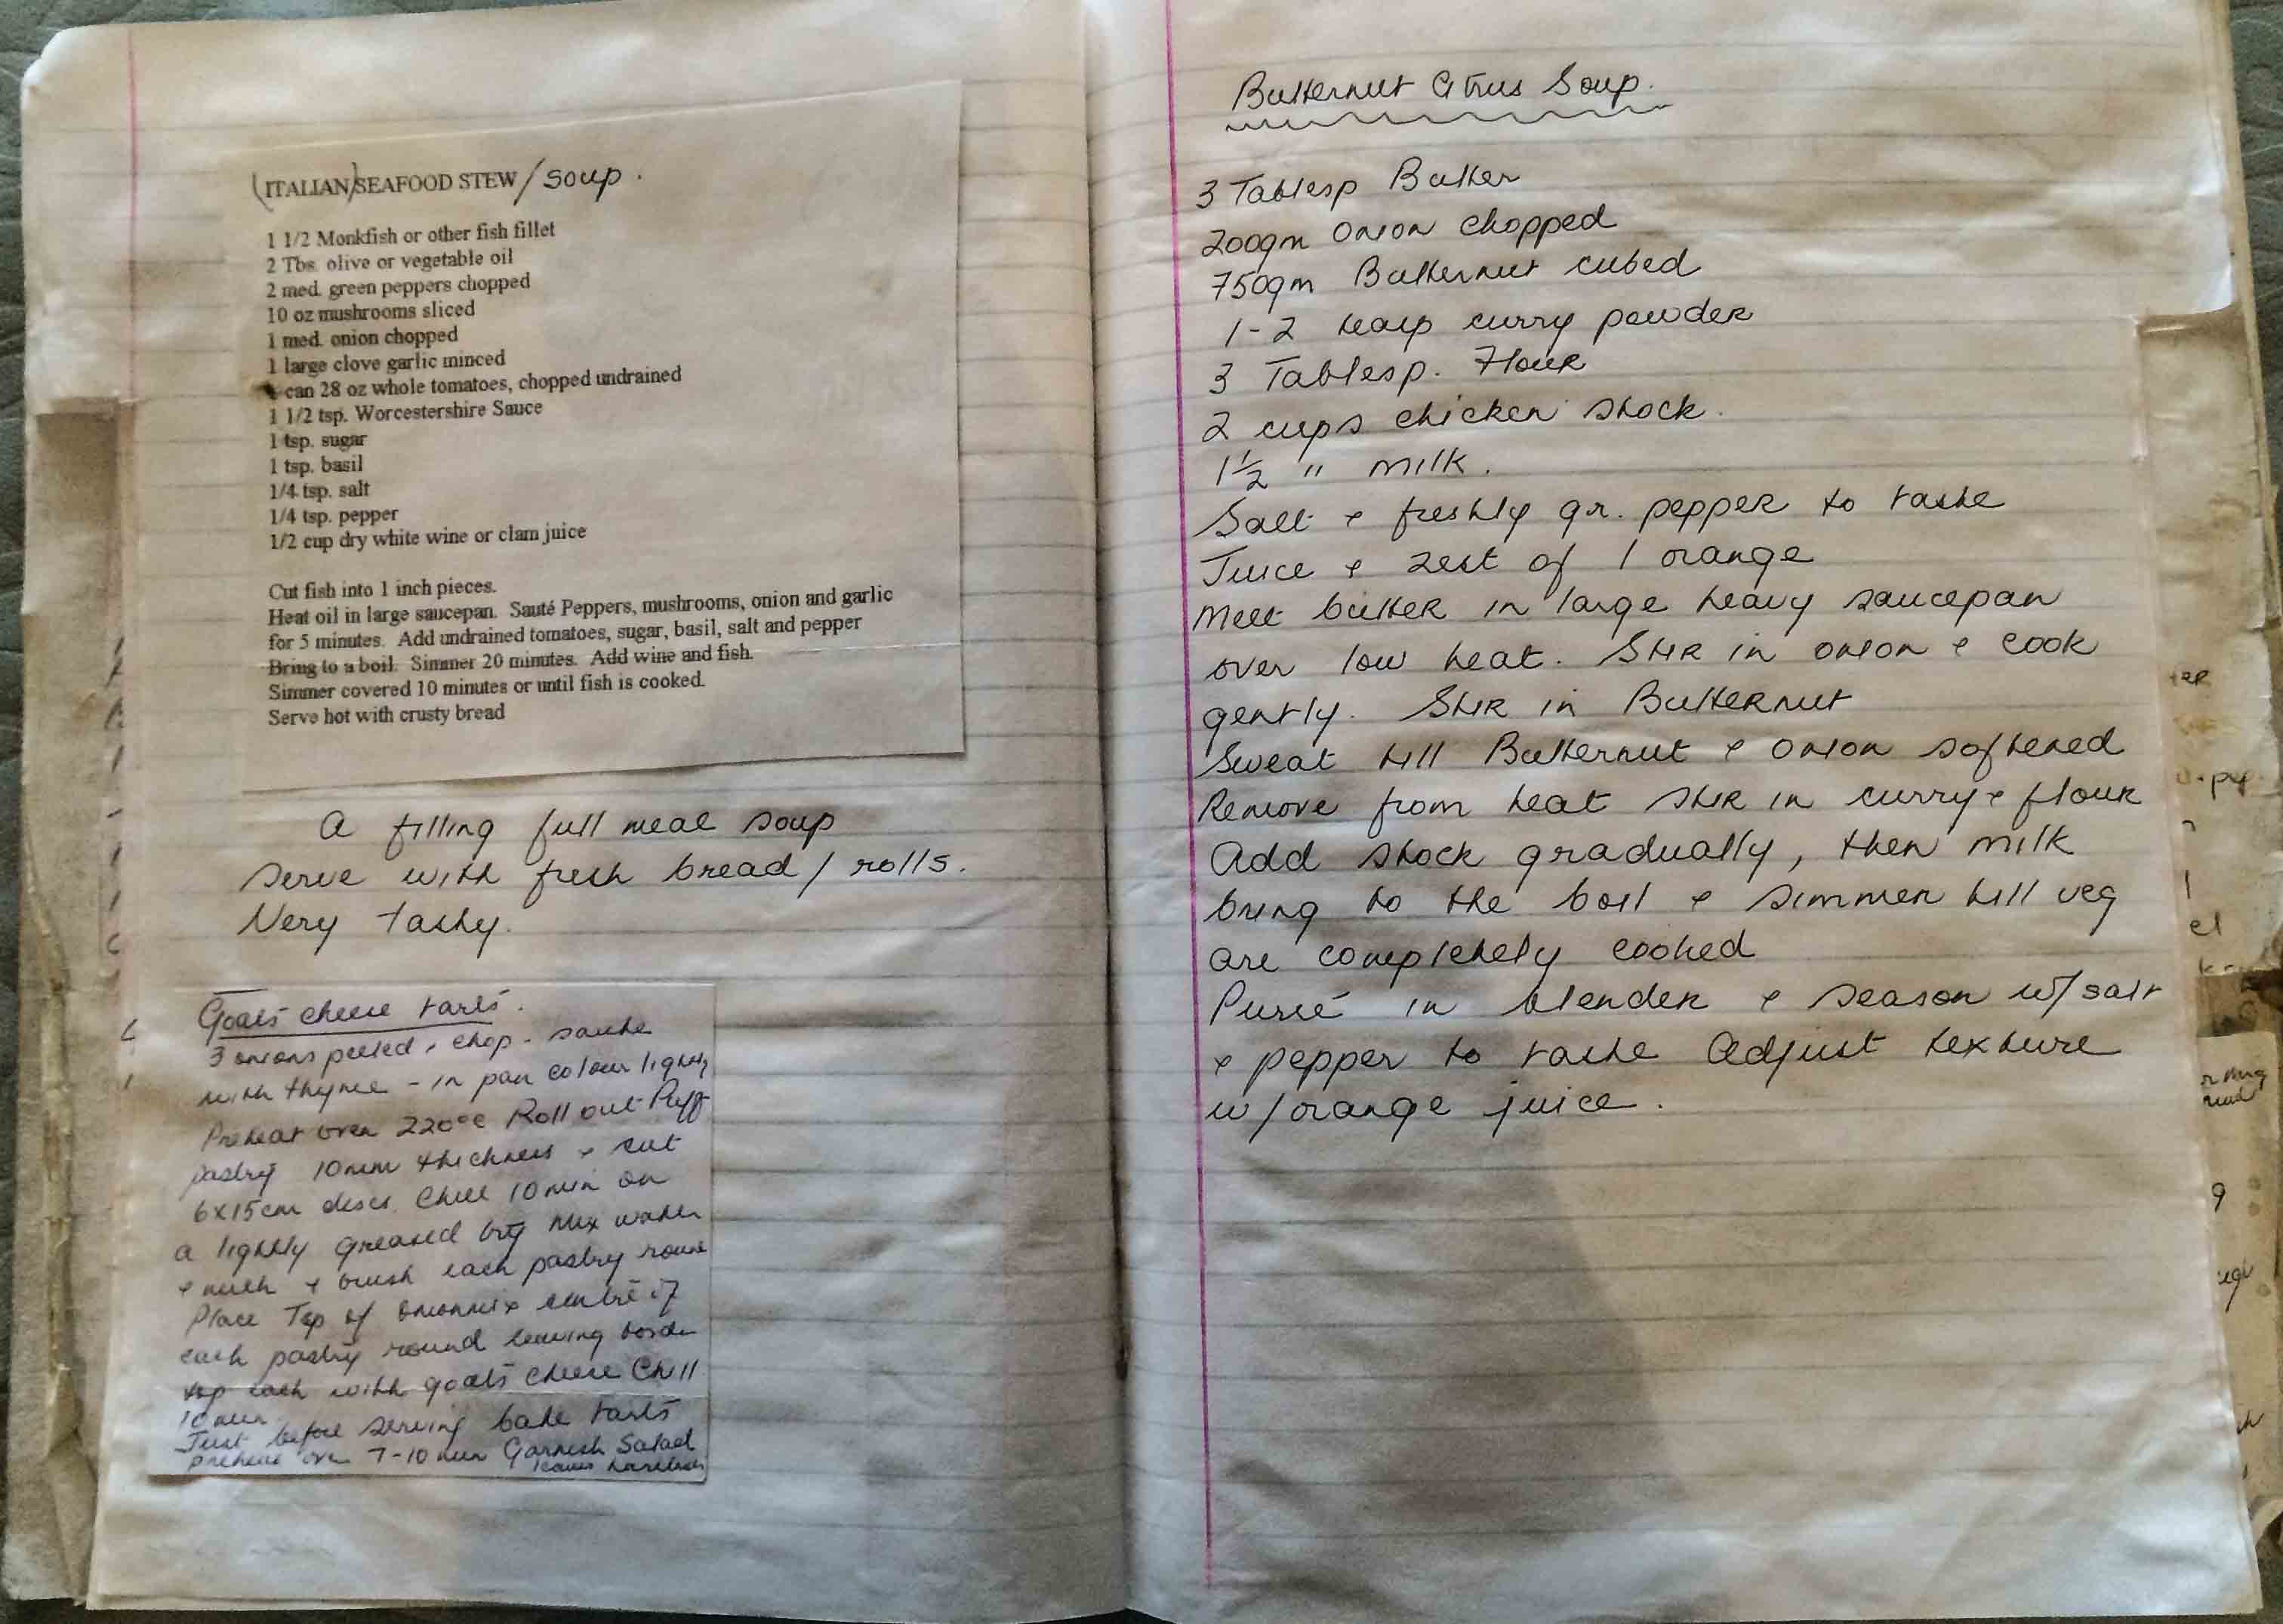 (ITALIAN) SEAFOOD STEW / soup.
1 1/2 Monkfish or other fish fillet
2 Tbs. olive or vegetable oil
2 med. green peppers chopped
10 oz mushrooms sliced
1 med. onion chopped
1 large clove garlic minced
can 28 oz whole tomatoes, chopped undrained
1 1/2 tsp. Worcestershire Sauce
1 tsp. sugar
1 tsp. basil
1/4 tsp. salt
1/4 tsp. pepper
1/2 cup dry white wine or clam juice
Cut fish into 1 inch pieces.
Heat oil in large saucepan. Sauté Peppers, mushrooms, onion and garlic
for 5 minutes. Add undrained tomatoes, sugar, basil, salt and pepper
Bring to a boil. Simmer 20 minutes. Add wine and fish.
Simmer covered 10 minutes or until fish is cooked.
Serve hot with crusty bread
A filling full meal soup
serve with fresh bread / rolls.
Very tasty.
Goats cheese tarts.
3 onions peeled + chop - saute
with thyme - in pan colour lightly
Preheat oven 220°c Roll out Puff
pastry 10mm thickness + cut
6x15cm discs. Chill 10 min on
a lightly greased try Mix water
+ milk + brush each pastry round
Place Tsp of onionmix centre of
each pastry round leaving border
top each with goats cheese Chill
10 min
Just before serving bake tarts
preheat oven 7-10 min Garnish Salad
leaves
Butternut Citrus Soup.
3 Tablesp Butter
200gm Onion chopped
750gm Butternut cubed
1-2 teasp curry powder
3 Tablesp. Flour
2 cups chicken stock.
1½ " milk.
Salt + freshly gr. pepper to taste
Juice + zest of 1 orange
Melt butter in large heavy saucepan
over low heat. Stir in onion + cook
gently. Stir in Butternut
Sweat till Butternut + onion softened
Remove from heat stir in curry + flour
Add stock gradually, then milk
bring to the boil + simmer till veg
are completely cooked
Pureé in blender + season w/ salt
+ pepper to taste Adjust texture
w/orange juice.